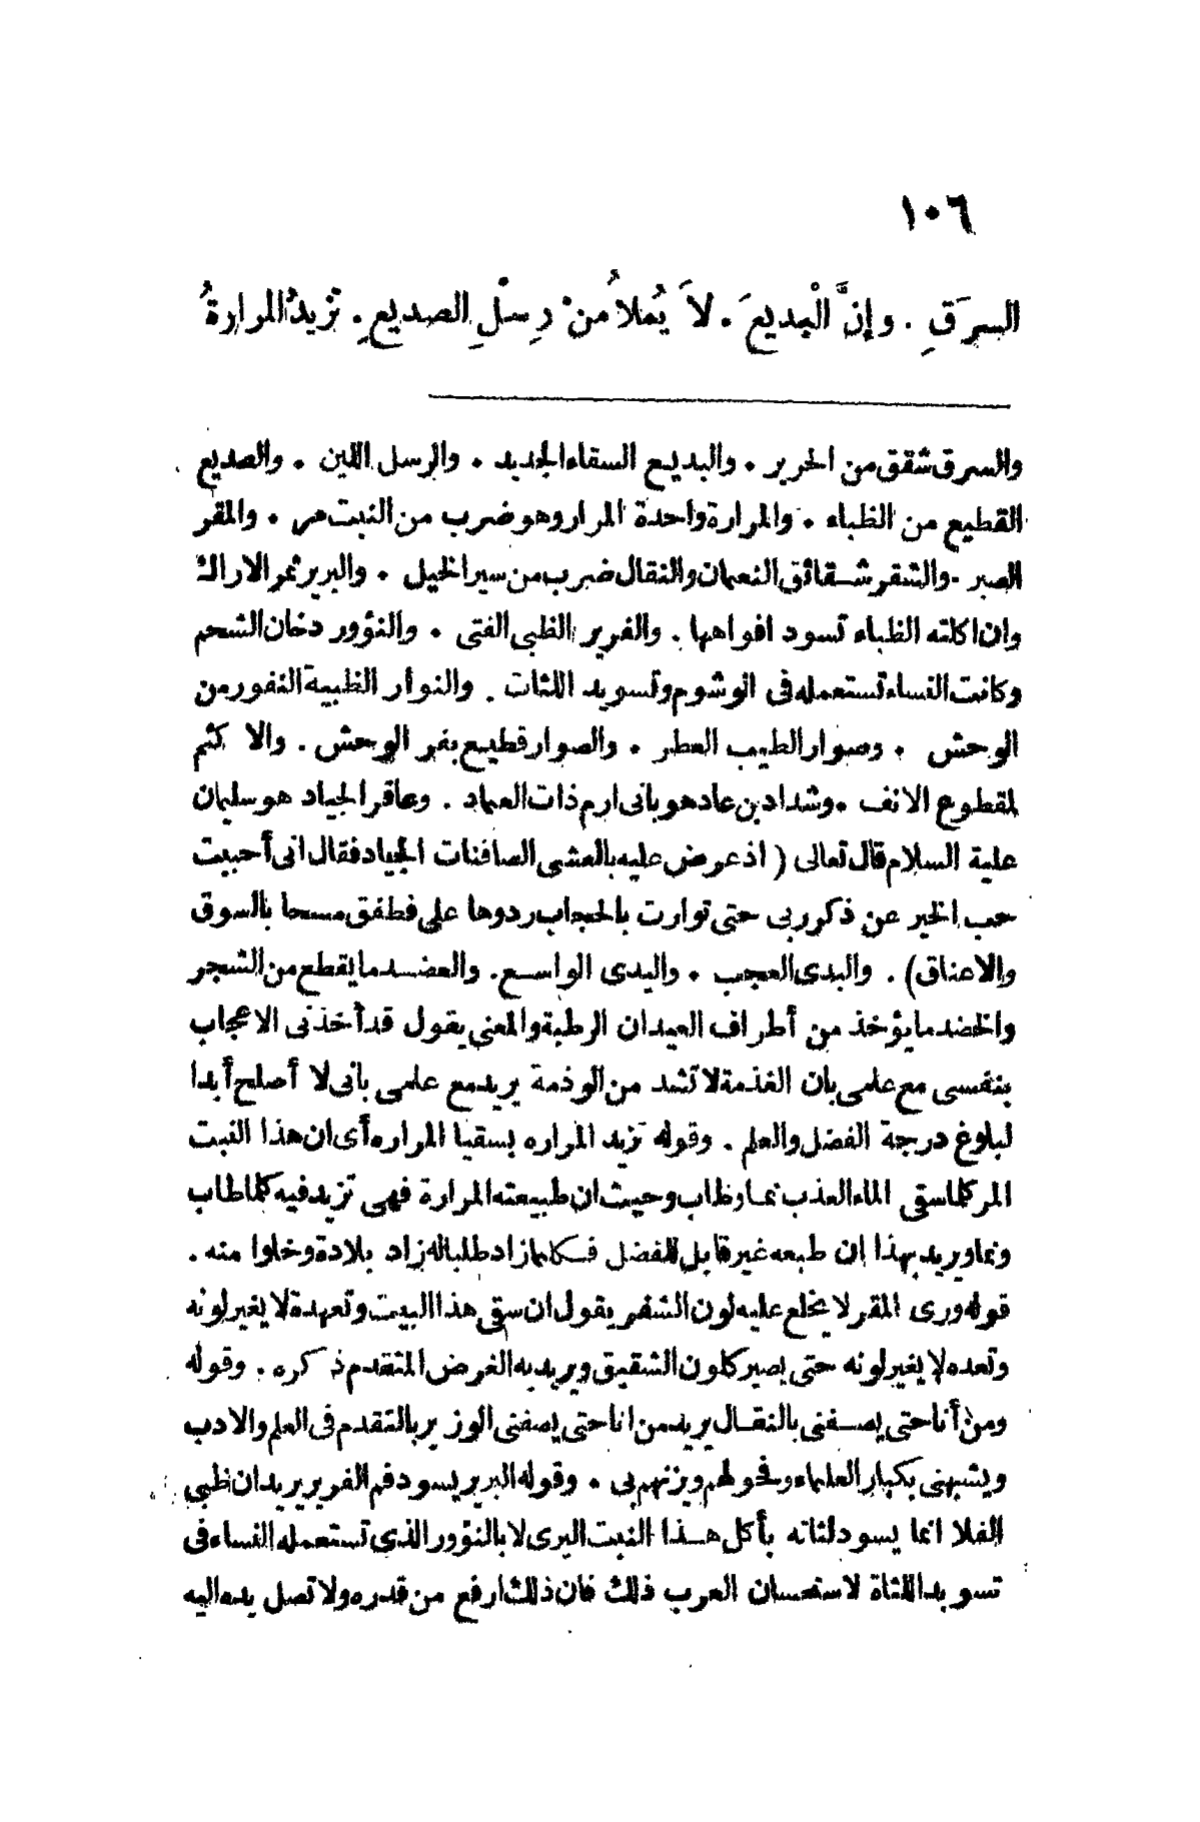 ١٠٦
السرَقِ . وإنَّ الْبديعَ . لاَ يُملأُ منْ رِسْلِ الصديعِ . تزيدُ المرارةُ
والسرق شقق من الحرير . والبديع السقاء الجديد . والرسل اللبن . والصديع
القطيع من الظباء . والمرارة واحدة المرار وهو ضرب من النبت مر . والمقر
الصبر . والشقر شقائق النعمان والنقال ضرب من سير الخيل . والبرير ثمر الاراك
وان اكلته الظباء تسود افواهها . والفرير الظبى الفتى . والنؤور دخان الشحم
وكانت النساء تستعمله فى الوشوم وتسويد اللثات . والنوار الظبية النفور من
الوحش . وصوار الطيب العطر . والصوار قطيع بقر الوحش . والا كثم
لمقطوع الانف . وشداد بن عاد هو بانى ارم ذات العماد . وعاقر الجياد هو سليمان
علية السلام قال تعالى ( اذ عرض عليه بالعشى الصافنات الجياد فقال انى أحببت
حب الخير عن ذكر ربى حتى توارت بالحجاب ردوها على فطفق مسحا بالسوق
والاعناق) . والبدى العجب . واليدى الواسع . والعضد ما يقطع من الشجر
والخضد ما يؤخذ من أطراف العيدان الرطبة والمعنى يقول قد أخذنى الاعجاب
بنفسى مع علمى بان الغذمة لا تشد من الوذمة يريد مع علمى بانى لا أصلح أبدا
لبلوغ درجة الفضل والعلم . وقوله تزيد المراره بسقيا المراره أى ان هذا النبت
المر كلما سقى الماء العذب نما وظاب وحيث ان طبيعته المرارة فهى تزيد فيه كلما طاب
ونما ويريد بهذا ان طبعه غير قابل للفضل فكلما زاد طلباله زاد بلادة وخلوا منه .
قوله ورى المقر لا يخلع عليه لون الشقر يقول ان سقى هذا البيت وتعهدة لا يغير لونه
وتعده لا يغير لونه حتى يصير كلون الشقيق ويريد به الغرض المتقدم ذ كره . وقوله
ومن أنا حتى يصفنى بالنقال يريد من انا حتى يصفنى الوزير بالتقدم فى العلم والادب
ويشبهنى بكبار العلماء وفحولهم ويزنهم بى . وقوله البرير يسود فم الفرير يريد ان ظبى
الفلا انما يسود لثاته بأكل هذا النبت البرى لا بالنؤور الذى تستعمله النساء فى
تسويد اللثاة لاستحسان العرب ذلك فان ذلك ارفع من قدره ولا تصل يده اليه